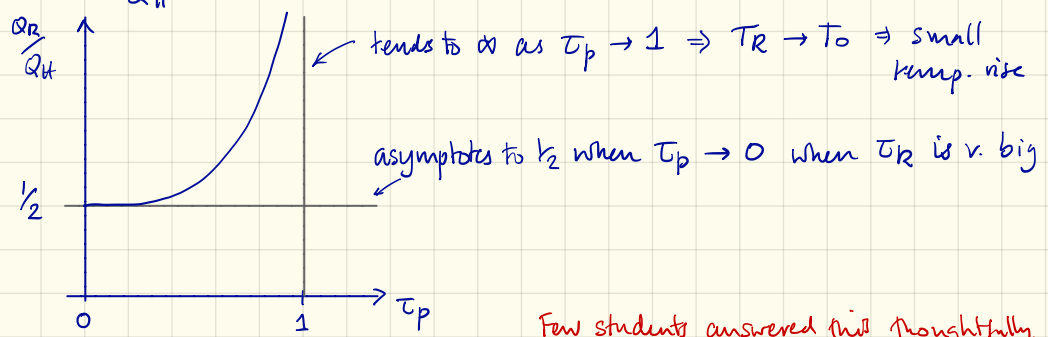 Q_R/Q_H
tends to ∞ as τ_p → 1 ⇒ T_R → T_0 ⇒ small
temp. rise
asymptotes to 1/2 when τ_p → 0 when τ_R is v. big
1/2
0
1
τ_p
Few students answered this thoughtfully